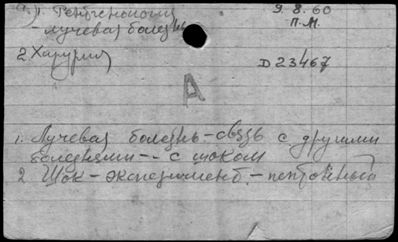 1. Рентгенология
9.8.60
- лучевая болезнь
П.М.
2. Хирургия
D 23467
А
1. Лучевая болезнь - связь с другими
болезнями -- с шоком
2 Шок - эксперимент. - пептонный